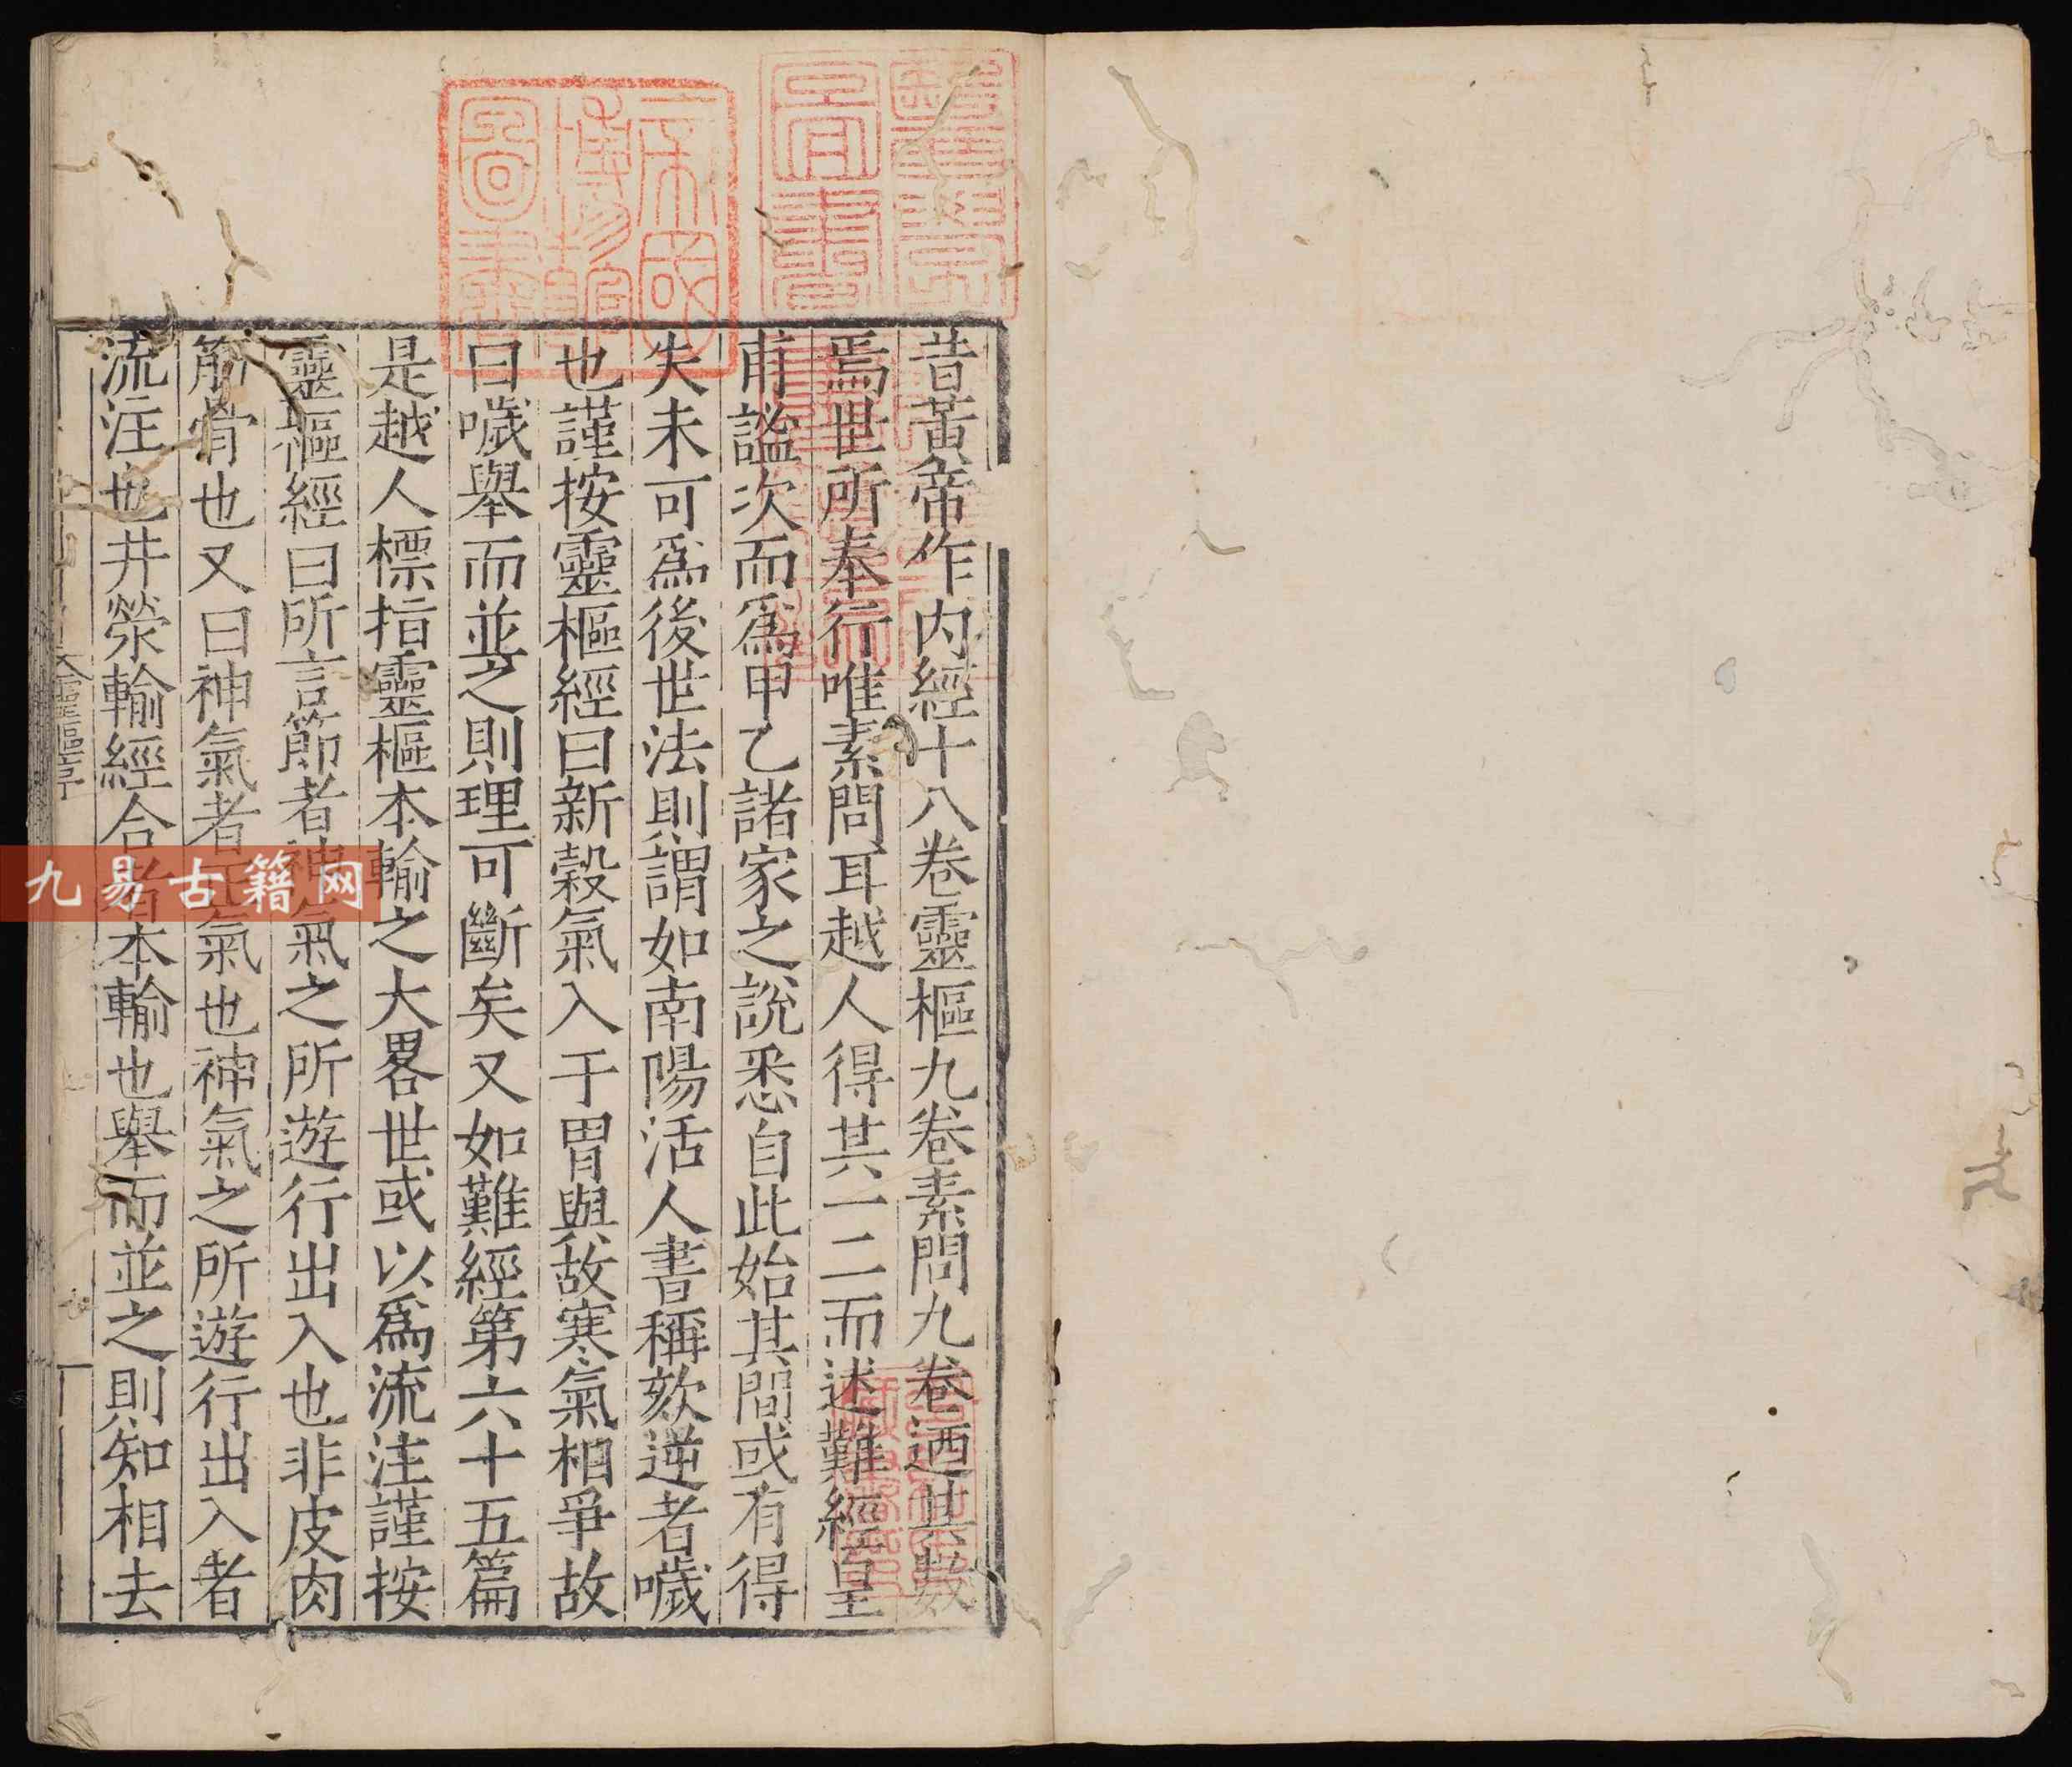 昔黃帝作內經十八卷靈樞九卷素問九卷迺其數
焉世所奉行唯素問耳越人得其一二而述難經皇
甫謐次而爲甲乙諸家之說悉自此始其間或有得
失未可爲後世法則謂如南陽活人書稱欬逆者噦
也謹按靈樞經曰新穀氣入于胃與故寒氣相爭故
曰噦舉而並之則理可斷矣又如難經第六十五篇
是越人標指靈樞本輸之大畧世或以爲流注謹按
靈樞經曰所言節者神氣之所遊行出入也非皮肉
筋骨也又曰神氣者正氣也神氣之所遊行出入者
流注也井滎輸經合者本輸也舉而並之則知相去
靈樞序
九易古籍网